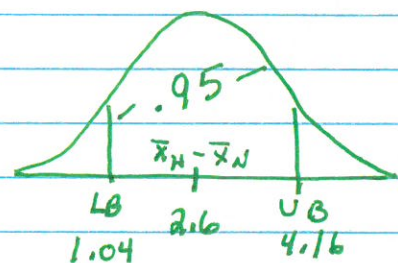 .95
x̄H - x̄N
LB 2.6 UB
1.04 4.16